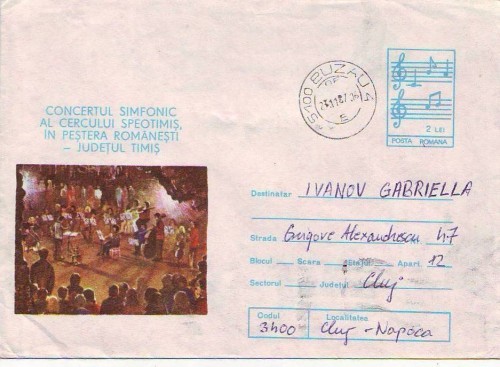 CONCERTUL SIMFONIC
AL CERCULUI SPEOTIMIȘ,
IN PEȘTERA ROMÂNEȘTI
– JUDEȚUL TIMIȘ
5100 BUZAU 4
2 LEI
POSTA ROMANA
Destinatar IVANOV GABRIELLA
Strada Grigore Alexandrescu 47
Blocul Scara Etaj Apart. 12
Sectorul Județul Cluj
Codul Localitatea
3400 Cluj-Napoca